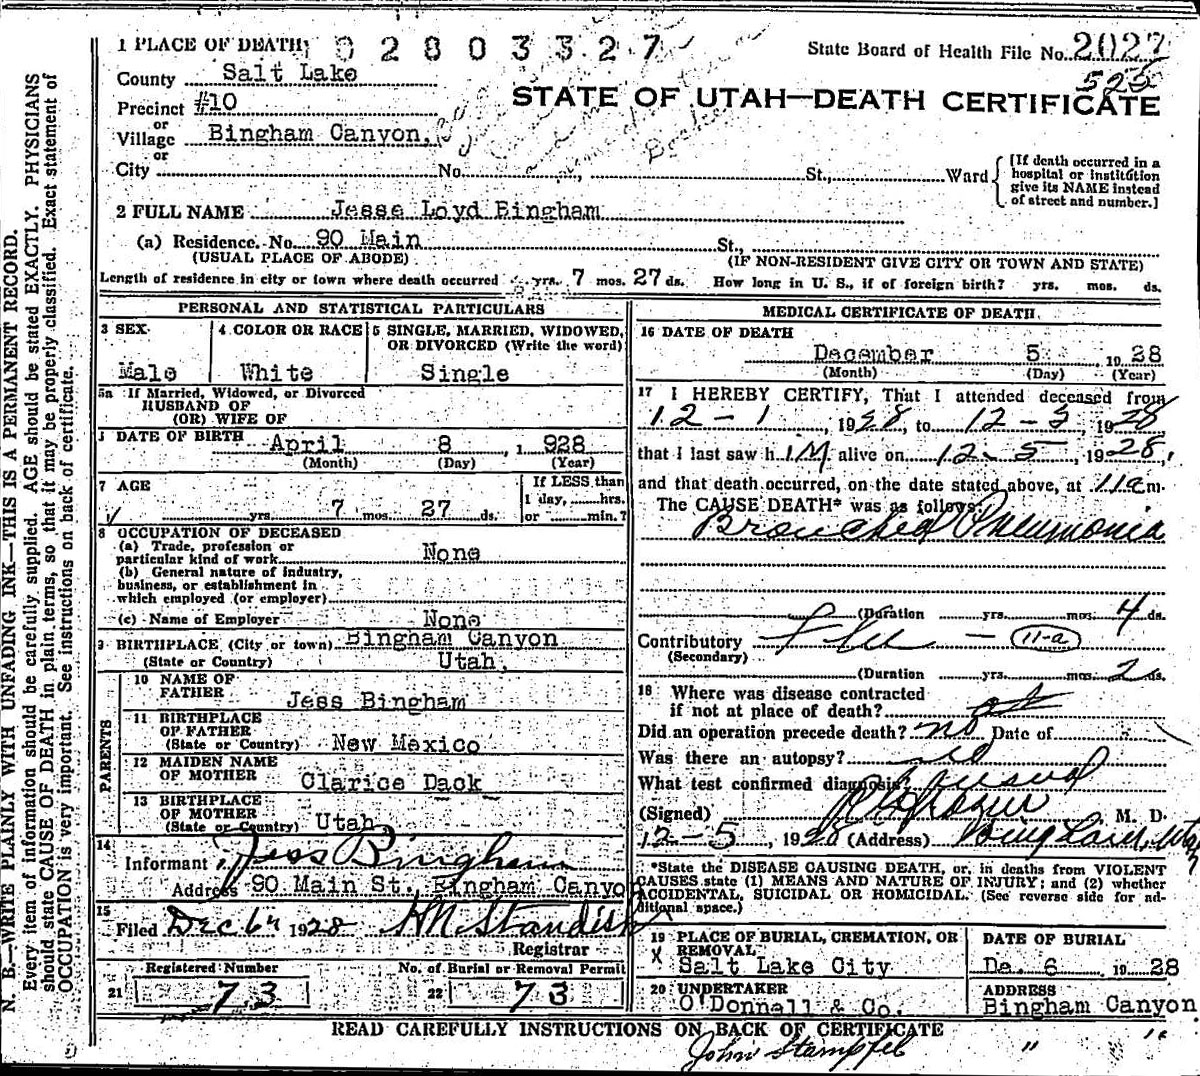 1 PLACE OF DEATH, 02803327 State Board of Health File No. 2027
County Salt Lake 525
STATE OF UTAH—DEATH CERTIFICATE
Precinct #10
or
Village Bingham Canyon,
or
City No. St., Ward
[If death occurred in a
hospital or institution
give its NAME instead
of street and number.]
2 FULL NAME Jesse Loyd Bingham
(a) Residence. No. 90 Main St.,
(USUAL PLACE OF ABODE) (IF NON-RESIDENT GIVE CITY OR TOWN AND STATE)
Length of residence in city or town where death occurred yrs. 7 mos. 27 ds. How long in U. S., if of foreign birth? yrs. mos. ds.
PERSONAL AND STATISTICAL PARTICULARS
3 SEX 4 COLOR OR RACE 5 SINGLE, MARRIED, WIDOWED,
OR DIVORCED (Write the word)
Male White Single
5a If Married, Widowed, or Divorced
HUSBAND OF
(OR) WIFE OF
DATE OF BIRTH April 8, 1928
(Month) (Day) (Year)
7 AGE If LESS than
1 day, hrs.
yrs. 7 mos. 27 ds. or min.?
8 OCCUPATION OF DECEASED
(a) Trade, profession or
particular kind of work None
(b) General nature of industry,
business, or establishment in
which employed (or employer)
(c) Name of Employer None
9 BIRTHPLACE (City or town) Bingham Canyon
(State or Country) Utah.
PARENTS
10 NAME OF
FATHER Jess Bingham
11 BIRTHPLACE
OF FATHER
(State or Country) New Mexico
12 MAIDEN NAME
OF MOTHER Clarice Dack
13 BIRTHPLACE
OF MOTHER
(State or Country) Utah
14
Informant Jess Bingham
Address 90 Main St., Bingham Canyon
15
Filed Dec 6th 1928 H.M. Standish
Registrar
Registered Number No. of Burial or Removal Permit
21 73 22 73
MEDICAL CERTIFICATE OF DEATH
16 DATE OF DEATH
December 5 1928
(Month) (Day) (Year)
17 I HEREBY CERTIFY, That I attended deceased from
12-1, 1928, to 12-5 1928
that I last saw him alive on 12-5, 1928,
and that death occurred, on the date stated above, at 11 a m.
The CAUSE DEATH* was as follows:
Bronchial Pneumonia
(Duration yrs. mos. 4 ds.
Contributory Flu — 11-a
(Secondary)
(Duration yrs. mos. 2 ds.
18 Where was disease contracted
if not at place of death? at
Did an operation precede death? no Date of
Was there an autopsy? no
What test confirmed diagnosis?
(Signed) M. D.
12-5, 1928 (Address) Bingham, Utah
*State the DISEASE CAUSING DEATH, or, in deaths from VIOLENT
CAUSES state (1) MEANS AND NATURE OF INJURY; and (2) whether
ACCIDENTAL, SUICIDAL OR HOMICIDAL. (See reverse side for ad-
ditional space.)
19 PLACE OF BURIAL, CREMATION, OR
REMOVAL DATE OF BURIAL
X Salt Lake City De. 6 1928
20 UNDERTAKER ADDRESS
O'Donnall & Co. Bingham Canyon
READ CAREFULLY INSTRUCTIONS ON BACK OF CERTIFICATE
John Stampfel " "
N. B.—WRITE PLAINLY WITH UNFADING INK—THIS IS A PERMANENT RECORD.
Every item of information should be carefully supplied. AGE should be stated EXACTLY. PHYSICIANS
should state CAUSE OF DEATH in plain terms, so that it may be properly classified. Exact statement of
OCCUPATION is very important. See instructions on back of certificate.